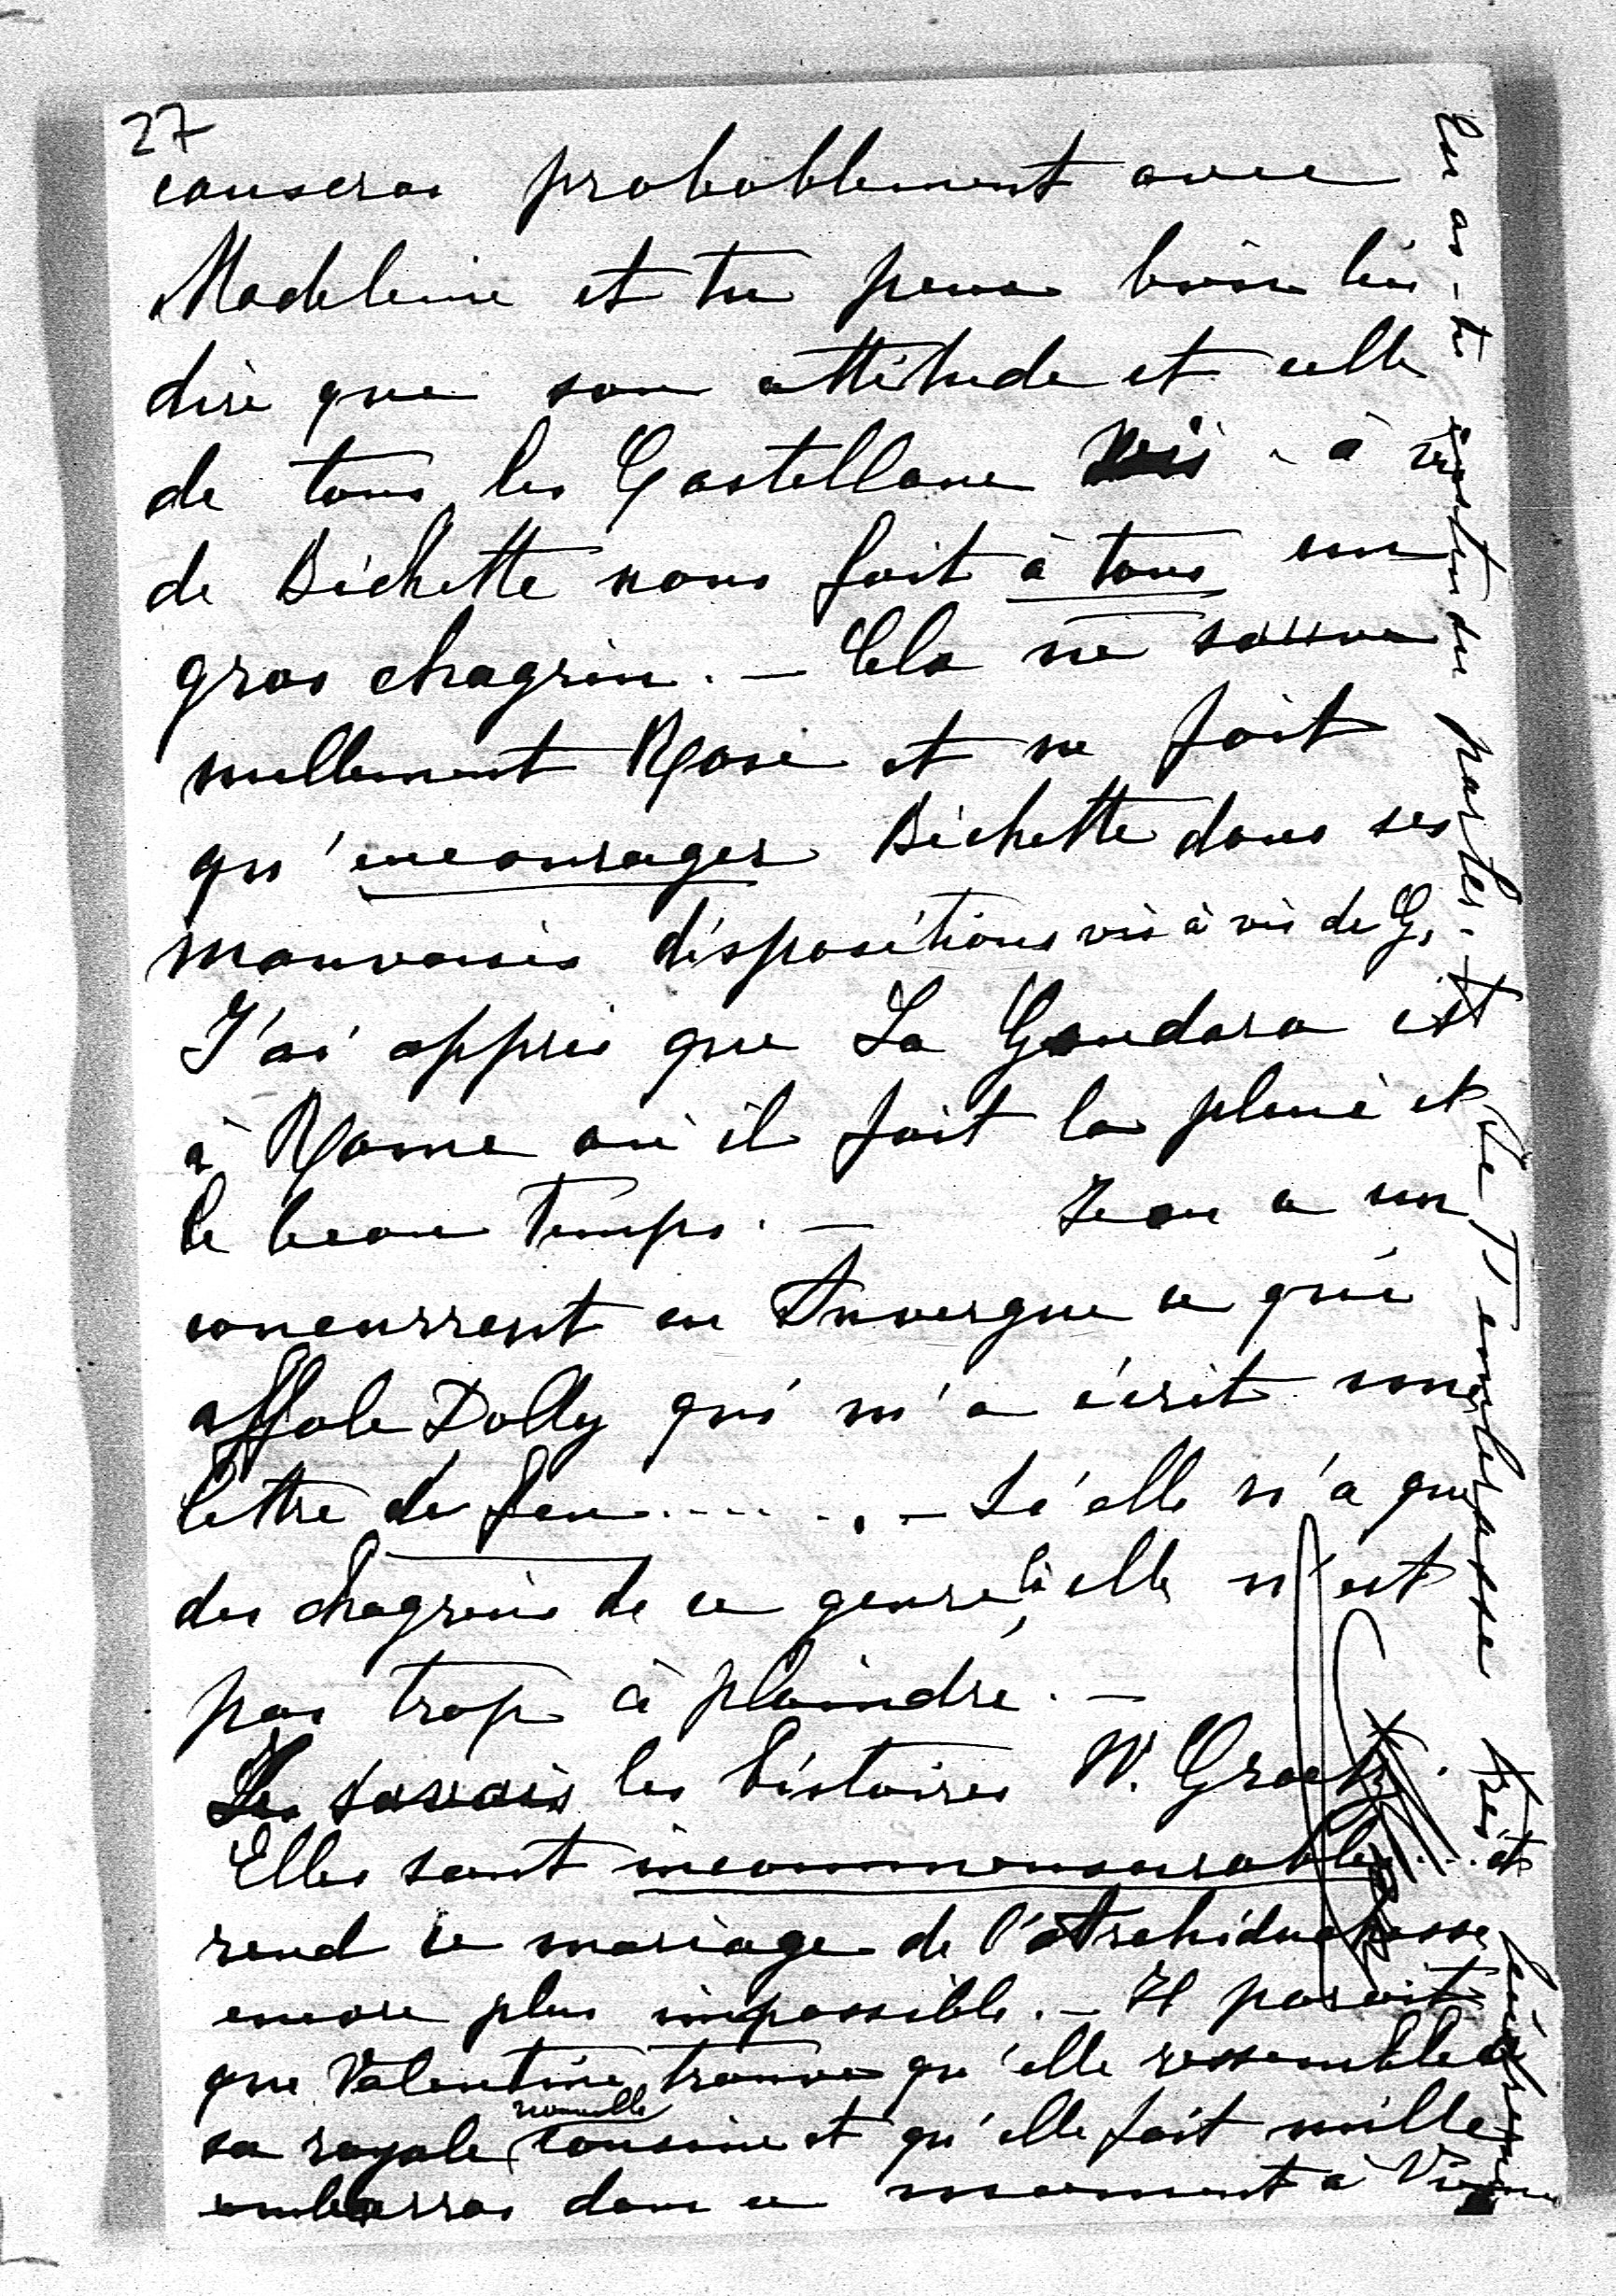 27
causeras probablement avec
Madeleine et tu peux bien lui
dire que son attitude et celle
de tous les Castellane vis-à vis
de Bichette nous fait à tous un
gros chagrin. — Cela ne sauve
nullement Rose et ne fait
qu'encourager Bichette dans ses
mauvaises dispositions vis à vis de G.
J'ai appris que La Gandara est
à Rome où il fait la pluie et
le beau temps. — Jean a un
concurrent en Auvergne ce qui
affole Dolly qui m'a écrit une
lettre de feu..... — Si elle n'a que
des chagrins de ce genre là, elle n'est
pas trop à plaindre. —
Je savais les histoires W. Graetz.
Elles sont incommensurables... et
rend le mariage de l'Archiduchesse
encore plus impossible. — Il paraît
que Valentine trouve qu'elle ressemble à
sa royale nouvelle cousine et qu'elle fait mille
embarras dans ce moment à Vienne
En as-tu entendu parler. — Je T'embrasse très